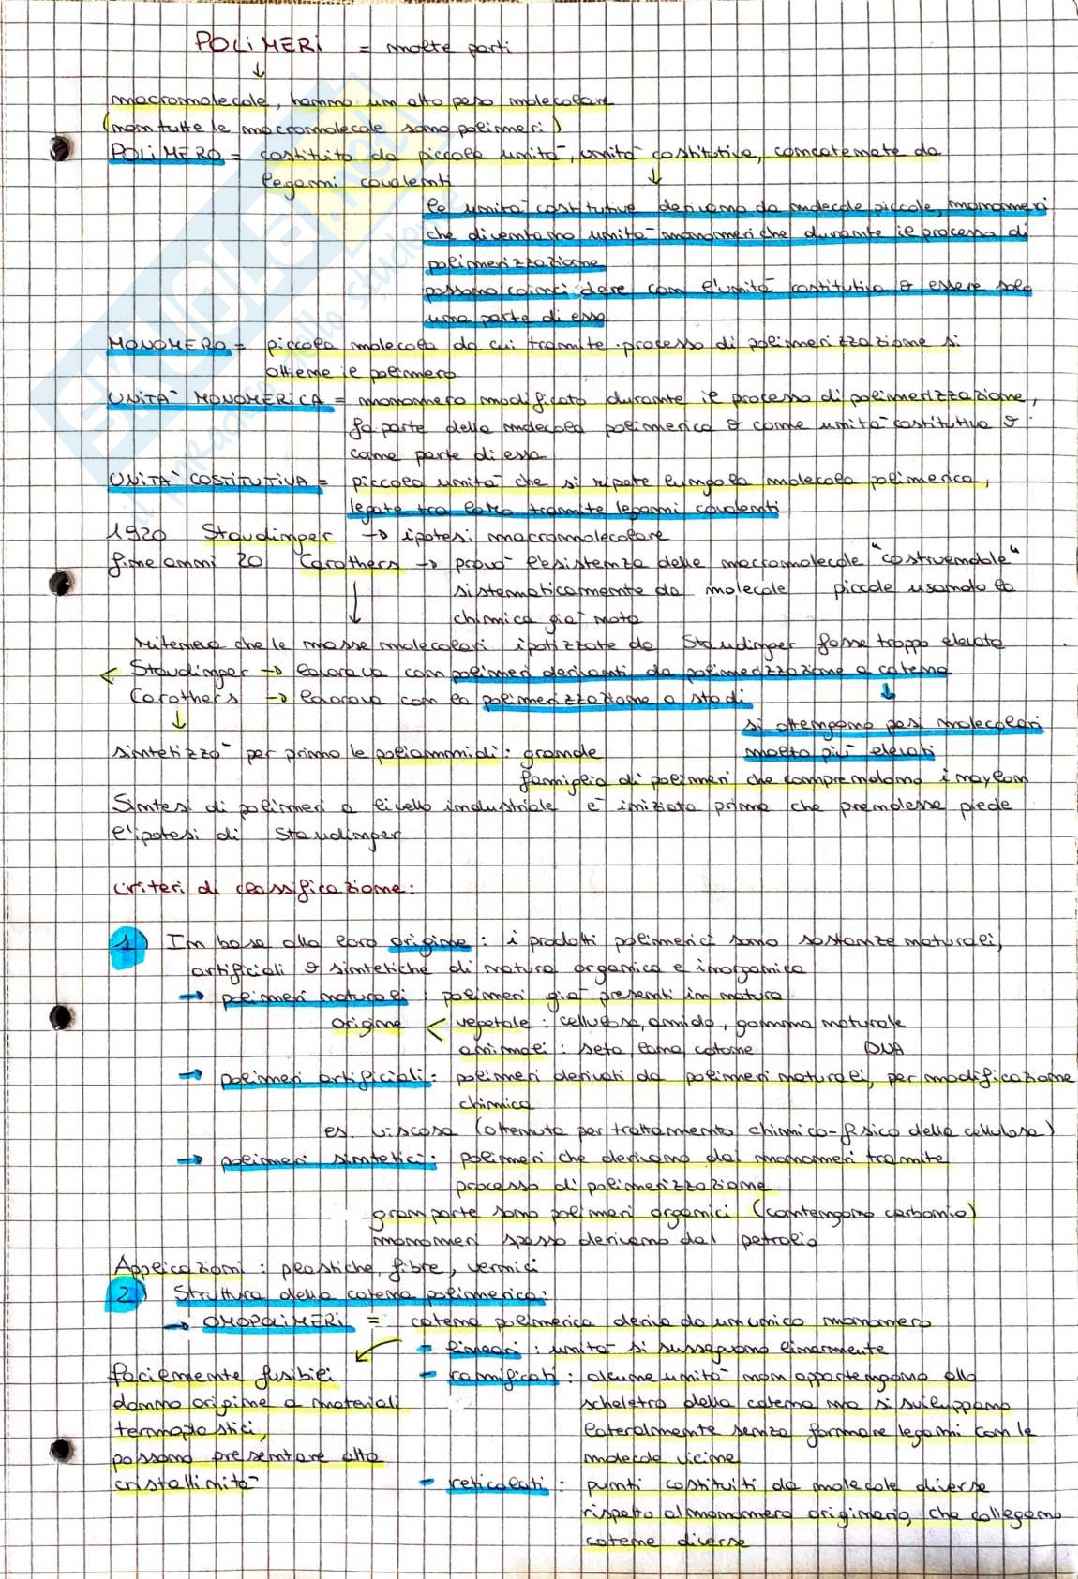 POLIMERI = molte parti
↓
macromolecole, hanno un alto peso molecolare
(non tutte le macromolecole sono polimeri)
POLIMERO = costituito da piccole unità, unità costitutive, concatenate da
legami covalenti
↓
le unità costitutive derivano da molecole piccole, monomeri
che diventano unità monomeriche durante il processo di
polimerizzazione
possono coincidere con l'unità costitutiva o essere solo
una parte di essa
MONOMERO = piccola molecola da cui tramite processo di polimerizzazione si
ottiene il polimero
UNITÀ MONOMERICA = monomero modificato durante il processo di polimerizzazione,
fa parte della molecola polimerica o come unità costitutiva o
come parte di essa
UNITÀ COSTITUTIVA = piccola unità che si ripete lungo la molecola polimerica,
legate tra loro tramite legami covalenti
1920 Staudinger → ipotesi macromolecolare
fine anni 20 Carothers → provò l'esistenza delle macromolecole "costruendole"
sistematicamente da molecole piccole usando la
chimica già nota
↓
riteneva che le masse molecolari ipotizzate da Staudinger fosse troppo elevate
< Staudinger → lavorava con polimeri derivanti da polimerizzazione a catena
Carothers → lavorava con la polimerizzazione a stadi
↓ ↓
si ottengono pesi molecolari
molto più elevati
sintetizzò per primo le poliammidi: grande
famiglia di polimeri che comprendono i naylon
Sintesi di polimeri a livello industriale è iniziata prima che prendesse piede
l'ipotesi di Staudinger
Criteri di classificazione:
1) In base alla loro origine: i prodotti polimerici sono sostanze naturali,
artificiali o sintetiche di natura organica e inorganica
→ polimeri naturali: polimeri già presenti in natura
origine < vegetale: cellulosa, amido, gomma naturale
animali: seta lana cotone DNA
→ polimeri artificiali: polimeri derivati da polimeri naturali, per modificazione
chimica
es. viscosa (ottenuta per trattamento chimico-fisico della cellulosa)
→ polimeri sintetici: polimeri che derivano dai monomeri tramite
processo di polimerizzazione
gran parte sono polimeri organici (contengono carbonio)
monomeri spesso derivano dal petrolio
Applicazioni: plastiche, fibre, vernici
2) Struttura della catena polimerica:
→ OMOPOLIMERI = catena polimerica deriva da un unico monomero
- lineari: unità si susseguono linearmente
facilmente fusibili
danno origine a materiali
termoplastici,
possono presentare alta
cristallinità
- ramificati: alcune unità non appartengono allo
scheletro della catena ma si sviluppano
lateralmente senza formare legami con le
molecole vicine
- reticolati: punti costituiti da molecole diverse
rispetto al monomero originario, che collegano
catene diverse